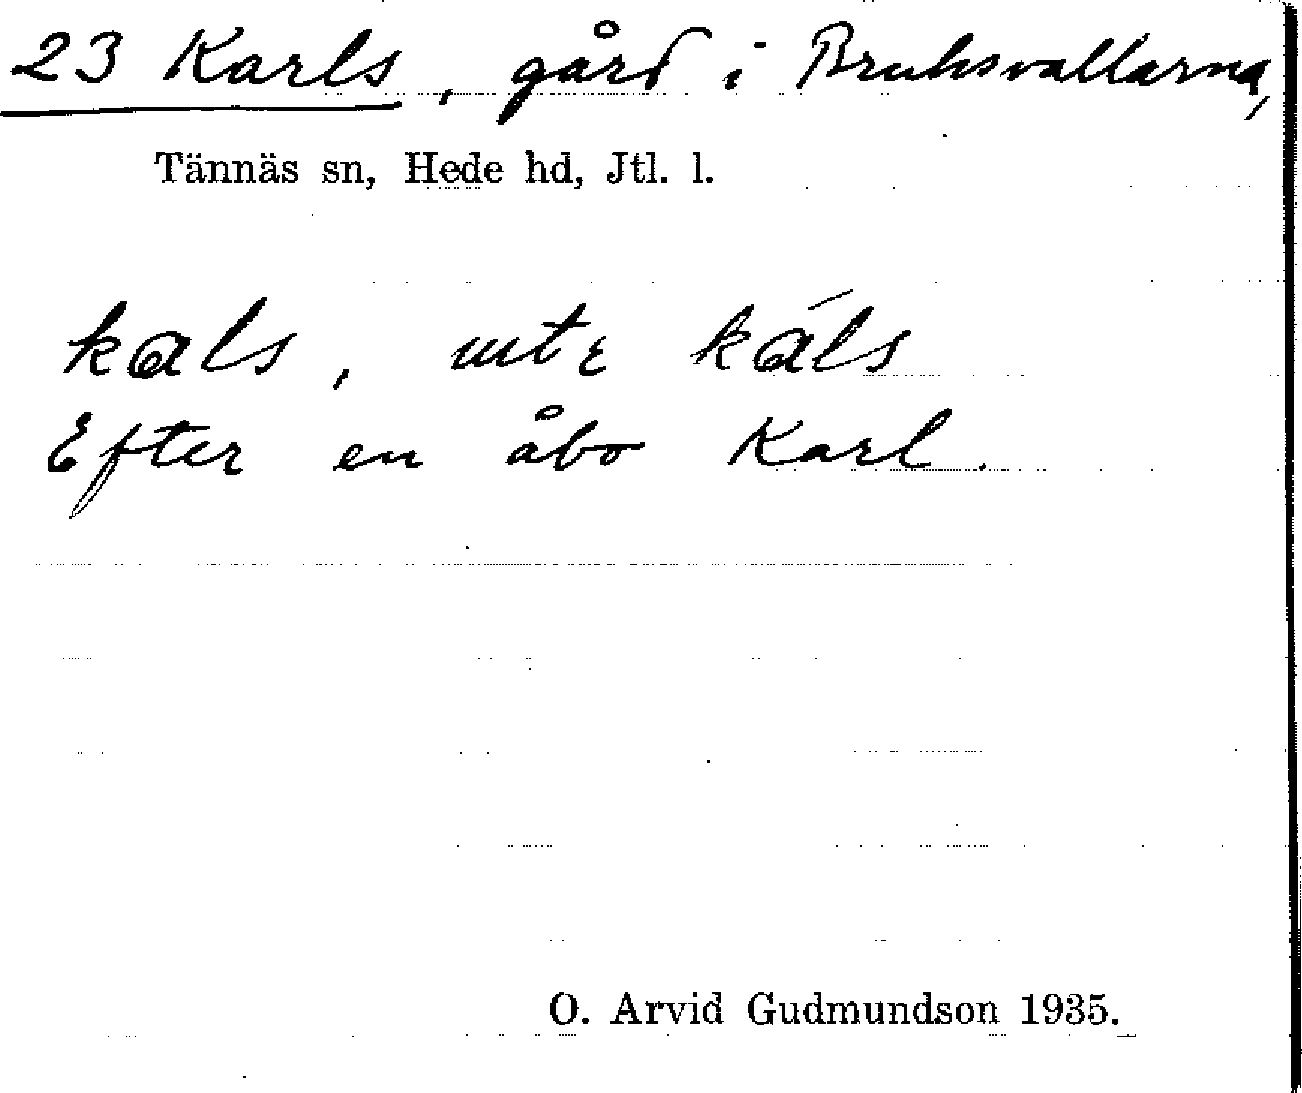 23 Karls, gård i Bruksvallarna,
Tännäs sn, Hede hd, Jtl. l.
kals, ute káls
Efter en åbo Karl.
O. Arvid Gudmundson 1935.